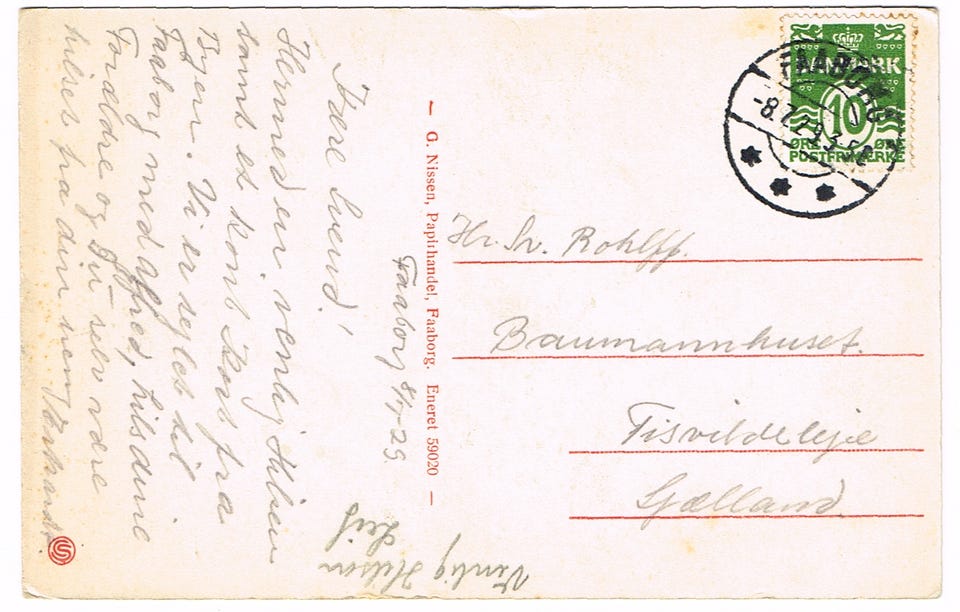 Faaborg 8/7-29.
Kære Svend!
Hermed en venlig Hilsen
samt et Kort fra
Byen. Vi er sejlet til
Faaborg med Alfred, hils dine
Forældre og Du selv være
hilset fra din
Venlig Hilsen
Leif
— G. Nissen, Papirhandel, Faaborg. Eneret 59020 —
DANMARK
10
ØRE ØRE
POSTFRIMÆRKE
FAABORG
-8.7.29.3-5
Hr. Sv. Rohlff.
Baumannhuset.
Tisvildeleje
Sjælland.